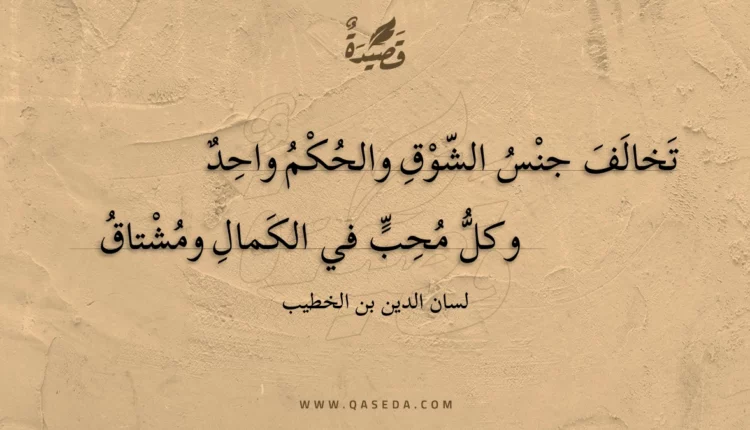 قَصِيدَةٌ
تَخالَفَ جنْسُ الشّوْقِ والحُكْمُ واحِدٌ
وكلُّ مُحِبٍّ في الكَمالِ ومُشْتاقُ
لسان الدين بن الخطيب
WWW.QASEDA.COM